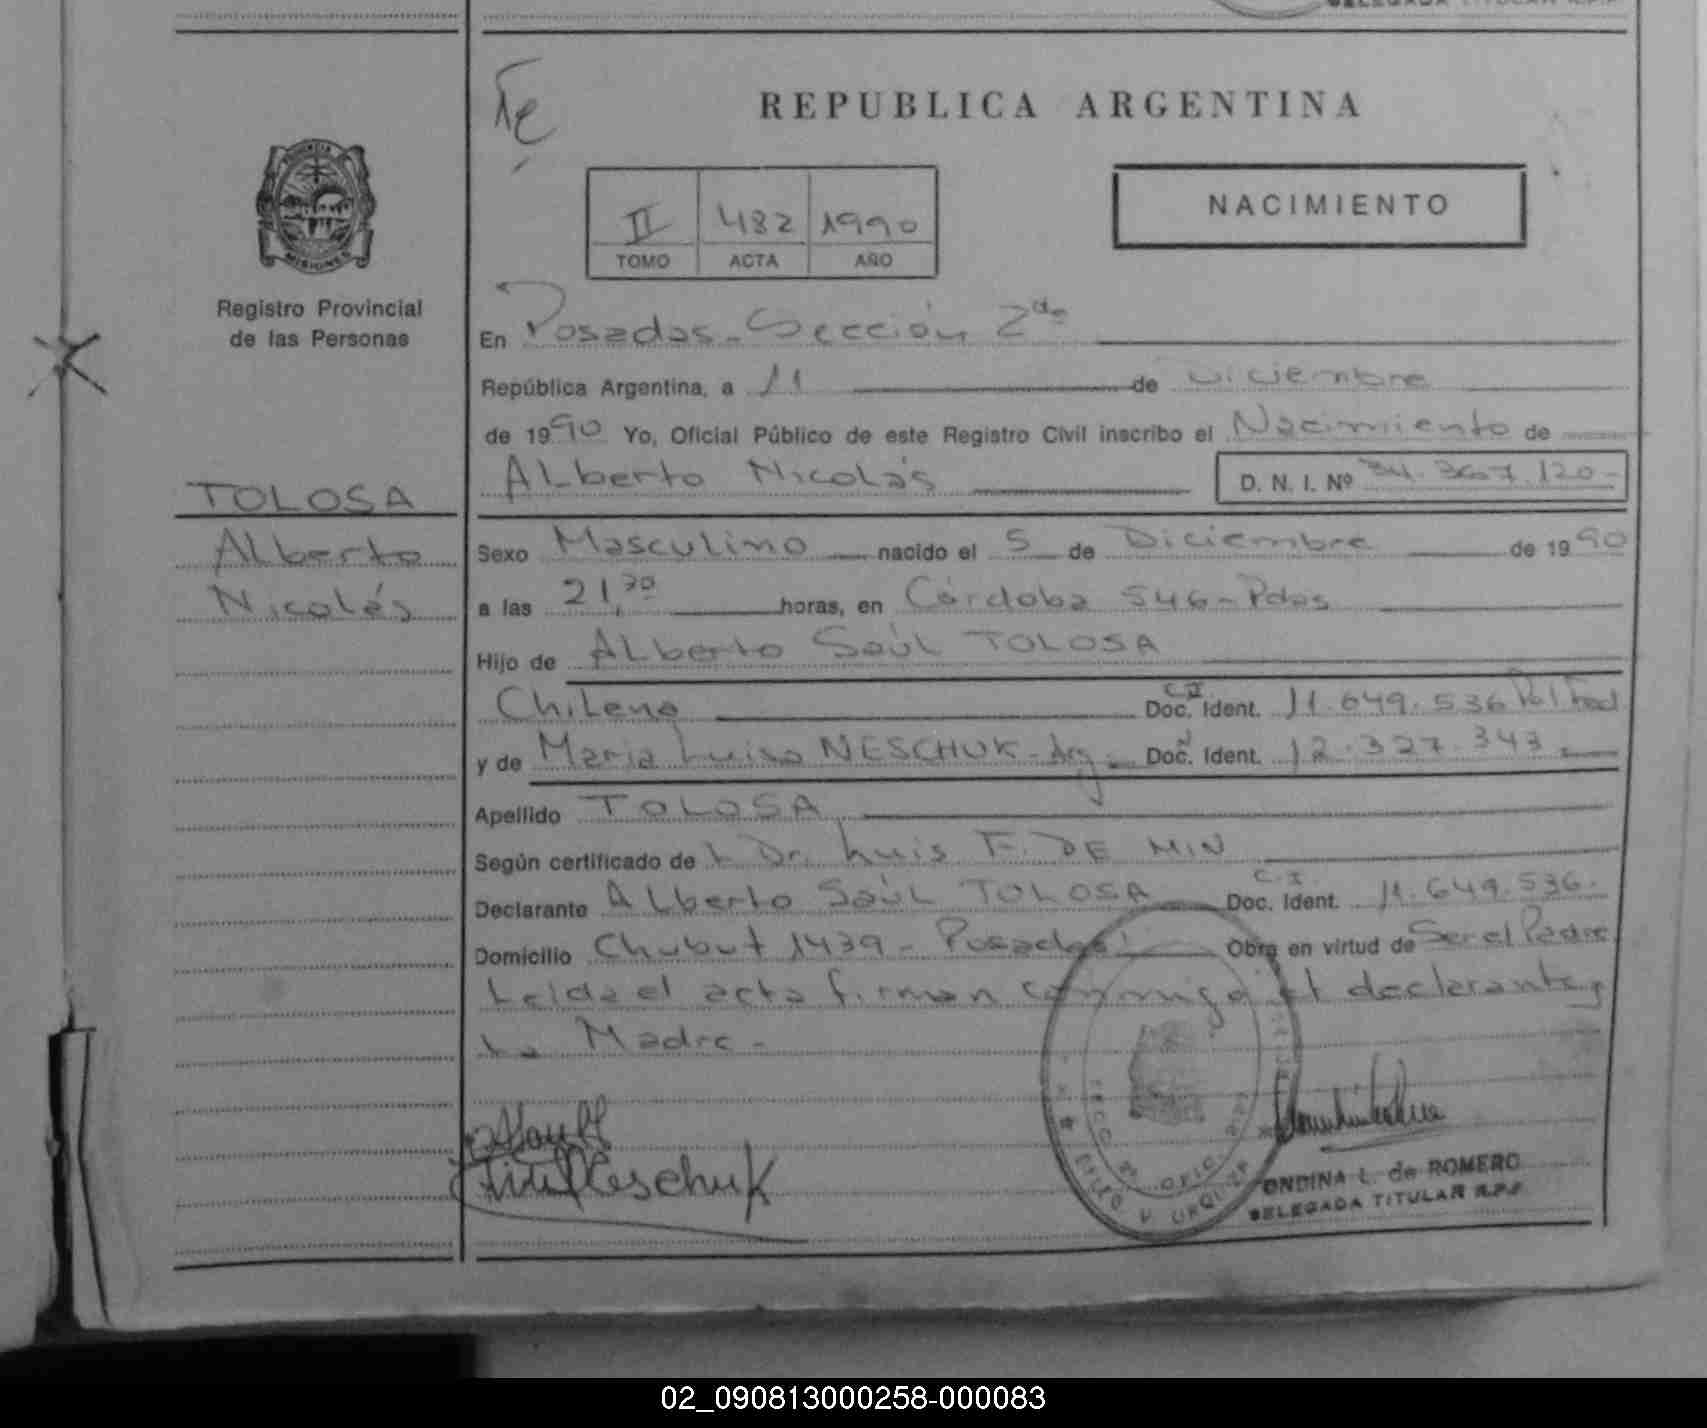 DELEGADA TITULAR R.P.P.
REPUBLICA ARGENTINA
II 482 1990
TOMO ACTA AÑO
NACIMIENTO
PROVINCIA DE
MISIONES
Registro Provincial
de las Personas
En Posadas - Sección 2da
República Argentina, a 11 de Diciembre
de 1990 Yo, Oficial Público de este Registro Civil inscribo el Nacimiento de
Alberto Nicolás D. N. I. Nº 34.367.120-
TOLOSA
Alberto
Nicolás
Sexo Masculino nacido el 5 de Diciembre de 1990
a las 21,30 horas, en Córdoba 546 - Pdas
Hijo de Alberto Saúl TOLOSA
Chileno C.I. Doc. Ident. 11.649.536 Pol Fed
y de Maria Luisa NESCHUK - Arg - Doc. Ident. 12.327.343
Apellido TOLOSA
Según certificado de L Dr. Luis F. DE MIN
Declarante Alberto Saúl TOLOSA C.I. Doc. Ident. 11.649.536.
Domicilio Chubut 1439 - Posadas Obra en virtud de Ser el Padre
Leída el acta firman conmigo el declarante y
la Madre -
Neschuk
ONDINA L. de ROMERO
DELEGADA TITULAR R.P.P.
02_090813000258-000083